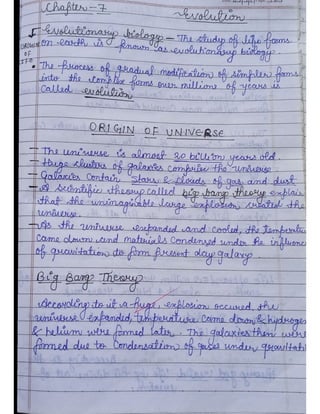 Chapter-7
Evolution
Evolutionary biology - The study of life forms
ORIGIN
OF
on earth is known as evolutionary biology.
The process of gradual modification of simpler forms
into the complex forms over millions of years is
called evolution
ORIGIN OF UNIVERSE
- The universe is almost 20 billion years old.
- Huge clusters of galaxies comprise the universe
- Galaxies contain stars & clouds of gas and dust
- A scientific theory called big bang theory explain
that the unimaginable large explosion created the
universe.
- As the universe expanded and cooled, the temperature
came down and materials condensed under the influence
of gravitation to form present day galaxy.
Big Bang Theory
According to it a huge explosion occured, the
universe expanded, temperature came down & hydrogen
& helium were formed later. The galaxies then were
formed due to condensation of gases under